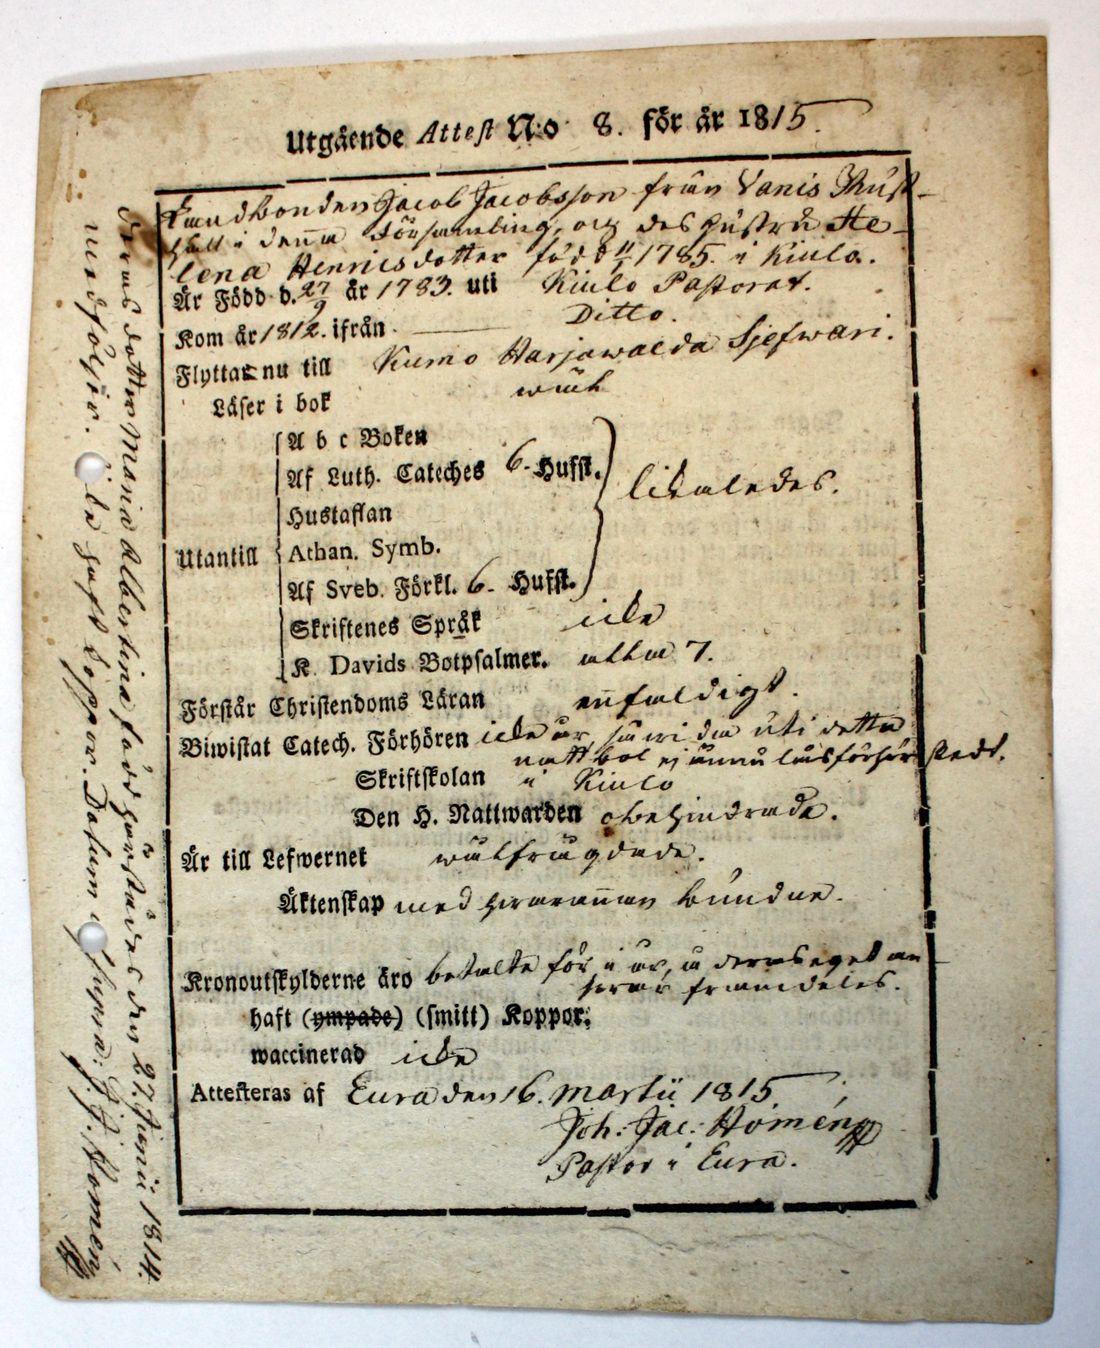 Utgående Attest N:o 8. för år 1815.
Landbonden Jacob Jacobsson från Vanis Rust-
håll i denna Församling, och des hustru He-
lena Henricsdotter född 11/1 1785. i Kiulo.
Är Född d. 27/9 år 1783. uti Kiulo Pastorat.
Kom år 1812. ifrån Ditto.
Flyttar nu till Kumo Harjawalda Sjefwari.
Läser i bok wäl
A b c Boken
Af Luth. Cateches 6. Hufst.
likaledes.
Hustaflan
Utantill Athan. Symb.
Af Sveb. Förkl. 6. Hufst.
Skriftenes Språk icke
K. Davids Botpsalmer. alla 7.
Förstår Christendoms Läran enfaldigt.
Biwistat Catech. Förhören icke år, så wida uti detta
matt bol ej ännu läsförhör skedt.
Skriftskolan i Kiulo
Den H. Nattwarden obehindrade.
Är till Lefwernet wälfrägdade.
Äktenskap med hwarannan bundne.
Kronoutskylderne äro betalte för i år, à deras eget an-
swar framdeles.
haft (ympade) (smitt) Koppor.
waccinerad icke
Attesteras af Eura den 16. Martii 1815
Joh: Jac: Homén
Pastor i Eura.
Deras dotter Maria Albertina född härstädes den 27. Junii 1814.
medföljer. icke haft koppor. Datum supra: J. J. Homén